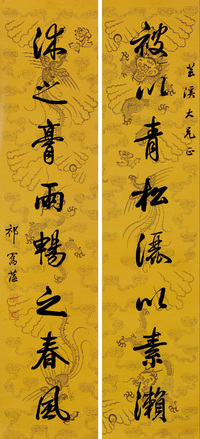 芸溪大兄正
被以青松灑以素瀨
沐之膏雨暢之春風
祁寯藻